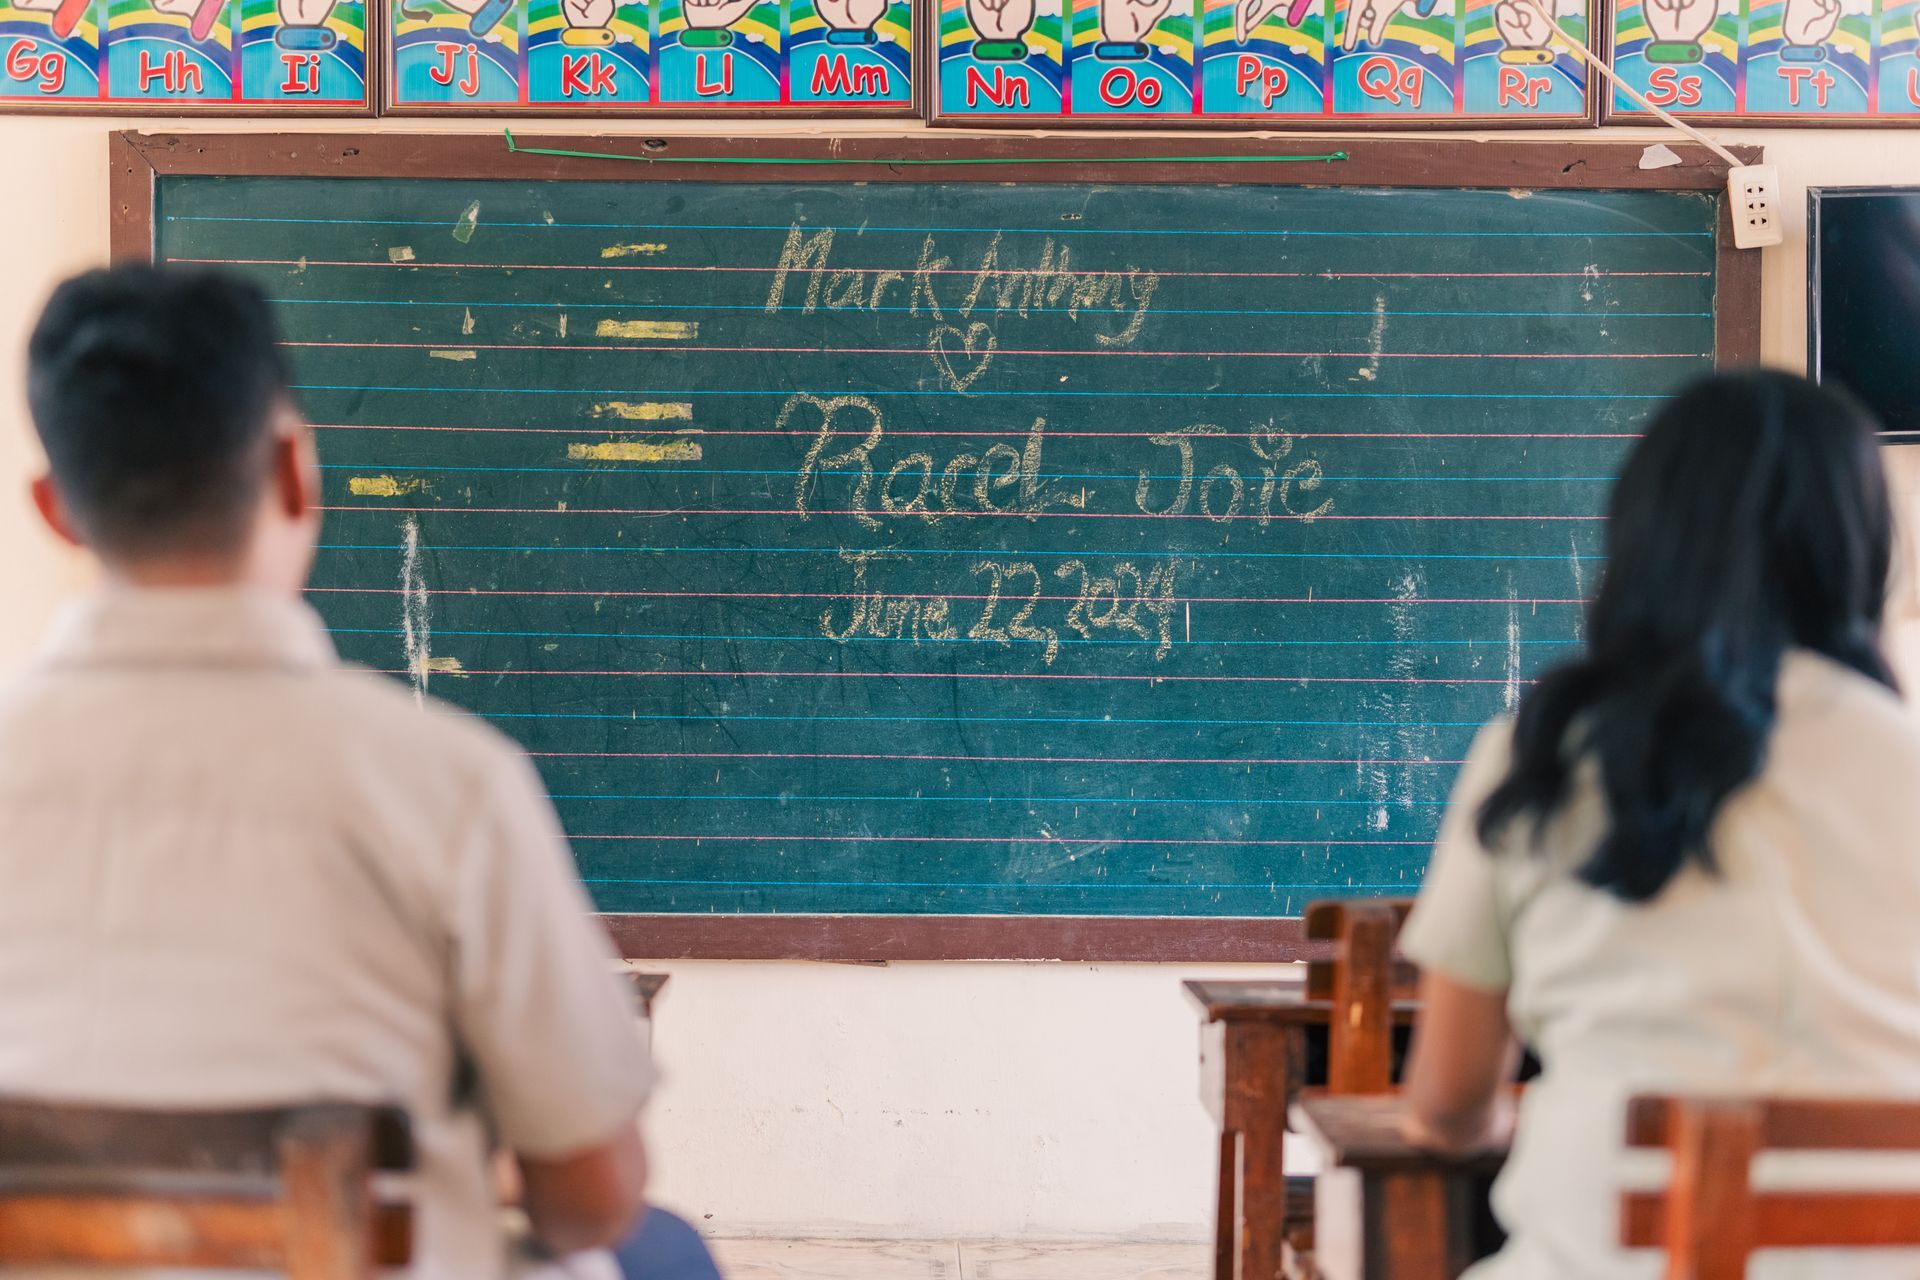 Gg Hh Ii Jj Kk Ll Mm Nn Oo Pp Qq Rr Ss Tt
Mark Anthony
Racel Joie
June 22, 2024